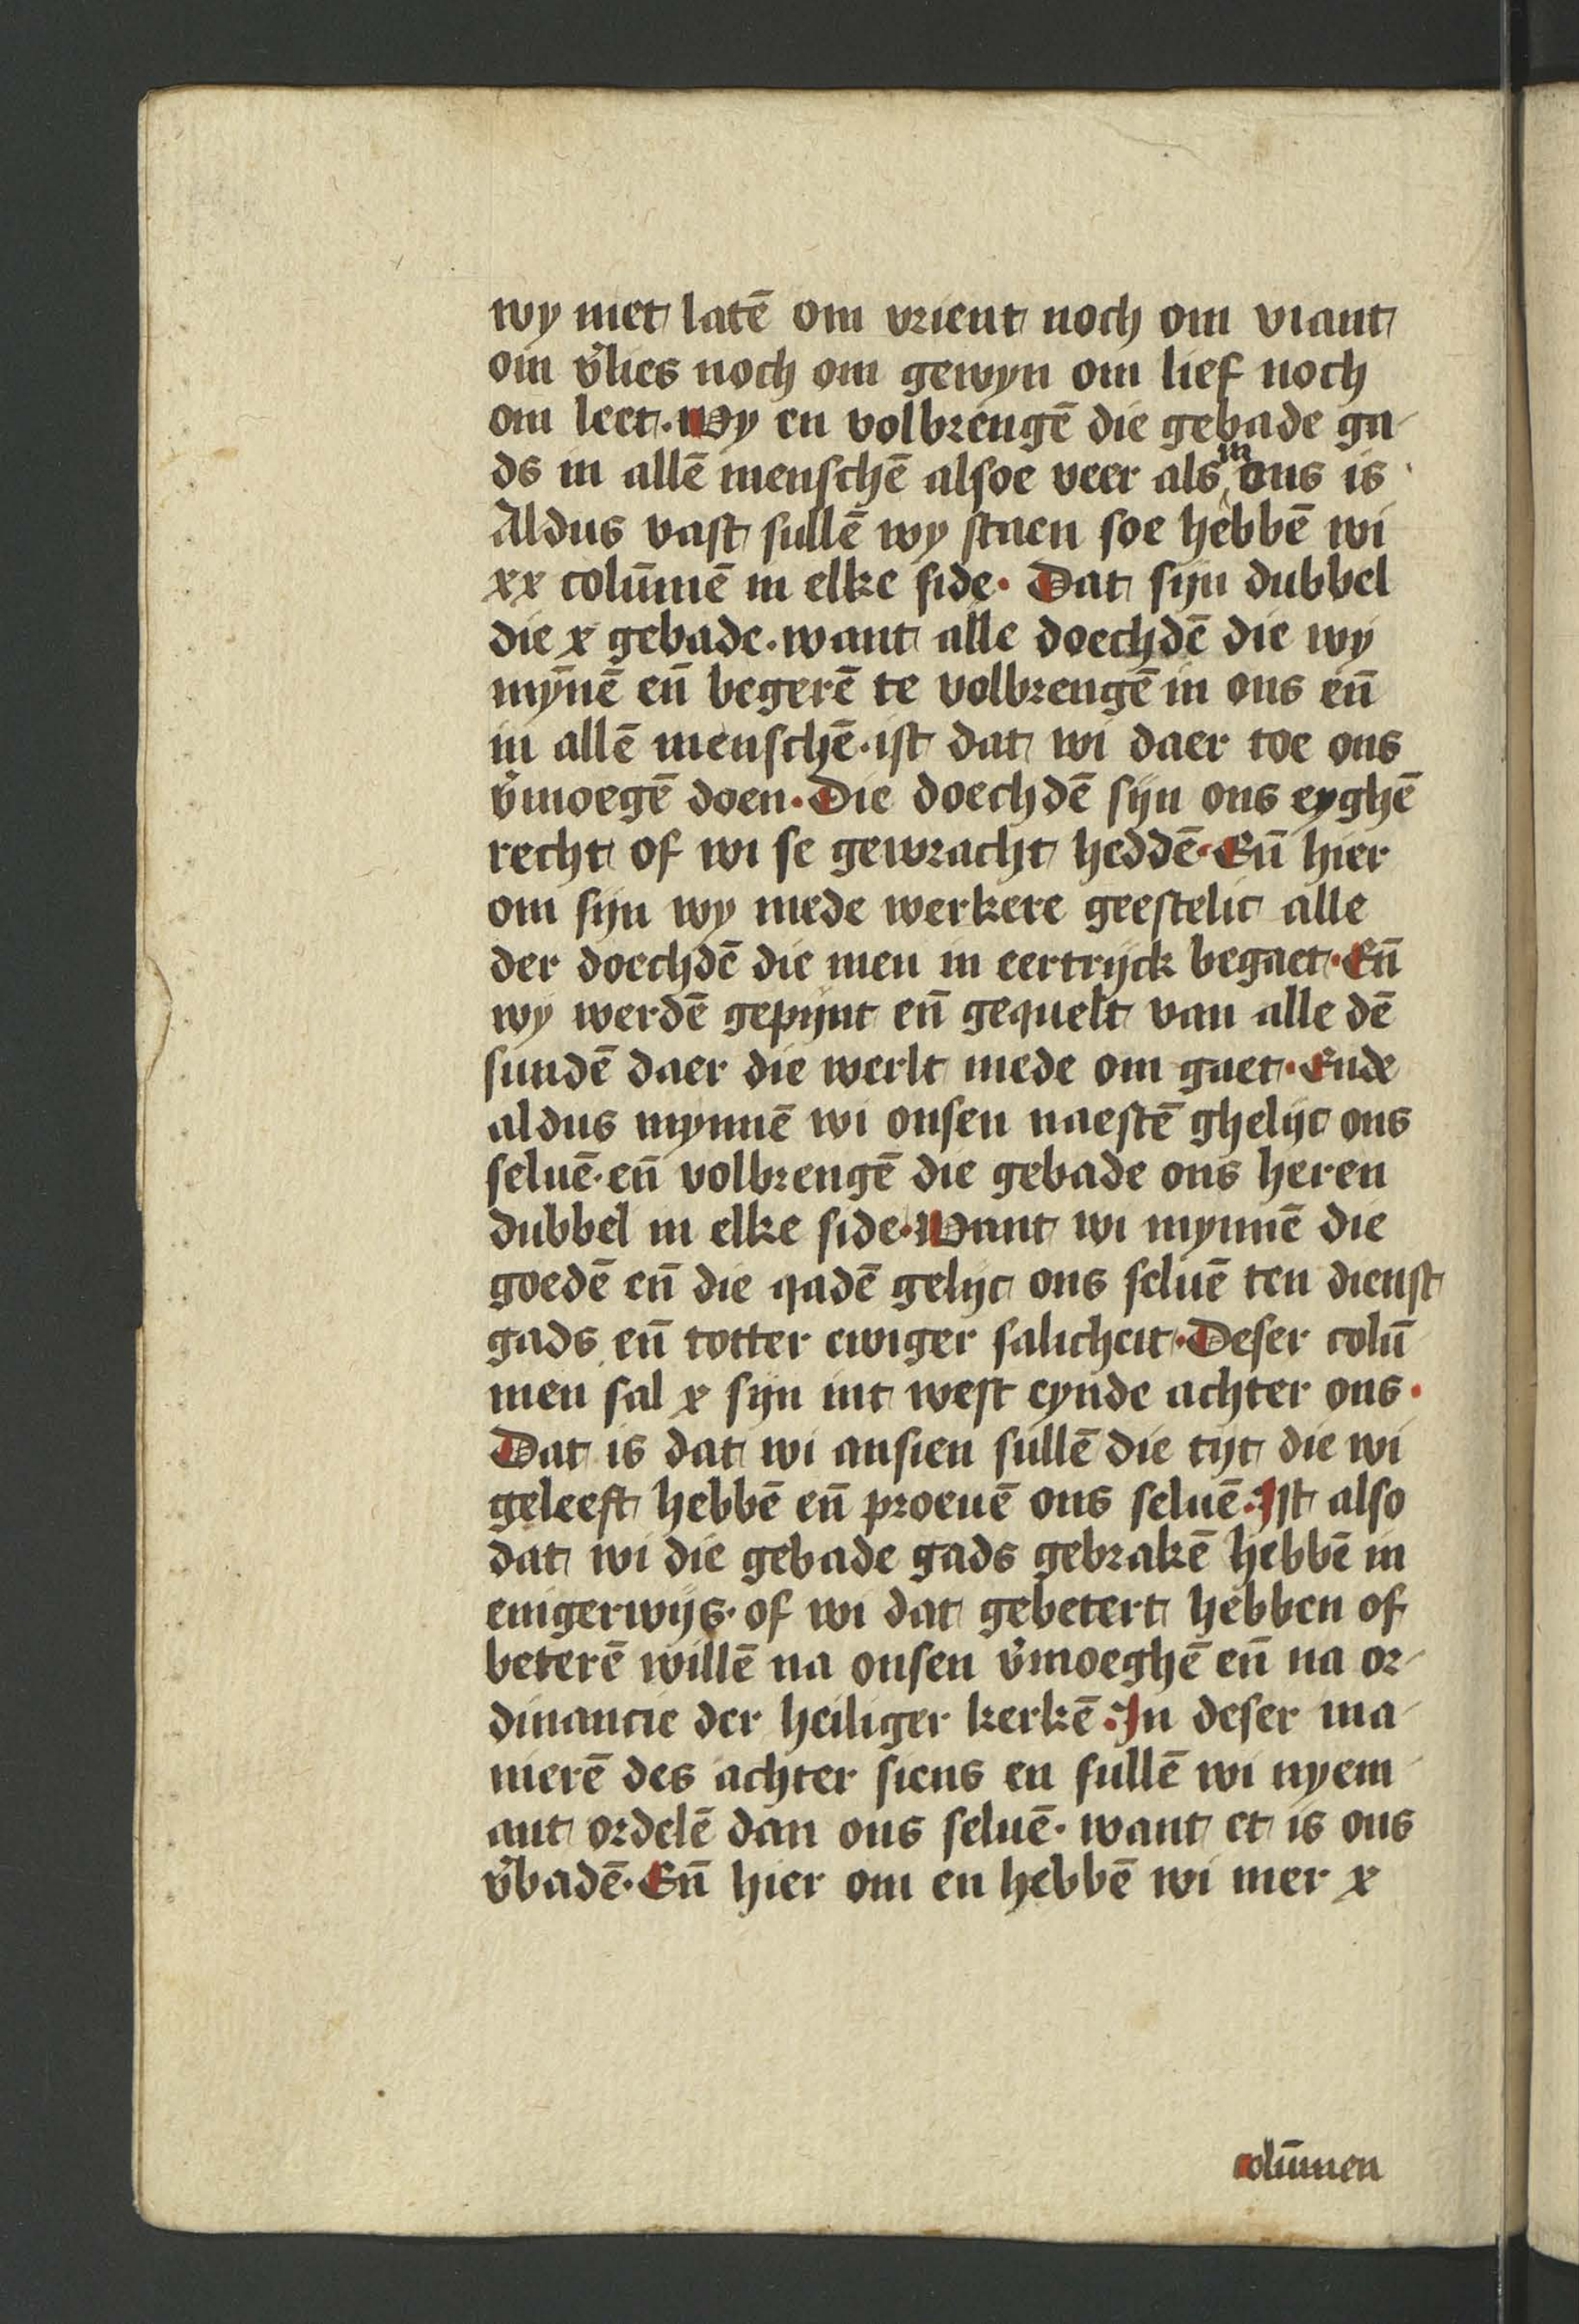 wy niet latē om vrient noch om viant
om v̾lies noch om gewyn om lief noch
om leet. Wy en volbrengē die gebade ga-
ds in allē menschē alsoe veer als in ons is.
Aldus vast sullē wy staen soe hebbē wi
xx colūmē in elke side. Dat sijn dubbel
die x gebade. want alle doechdē die wy
mȳnē eñ begerē te volbrengē in ons eñ
in allē menschē. ist dat wi daer toe ons
v̾moegē doen. Die doechdē sijn ons eyghē
recht of wi se gewracht heddē. Eñ hier
om sijn wy mede werkere geestelic alle
der doechdē die men in eertrijck begaet. Eñ
wy werdē gepijnt eñ gequelt van alle dē
sundē daer die werlt mede om gaet. Ende
aldus mynnē wi onsen naestē ghelijc ons
seluē. eñ volbrengē die gebade ons heren
dubbel in elke side. Want wi mynnē die
goedē eñ die qadē gelijc ons seluē ten dienst
gads eñ totter ewiger salicheit. Deser colū
men sal x sijn int west eynde achter ons.
Dat is dat wi ansien sullē die tijt die wi
geleeft hebbē eñ proeuē ons seluē. Ist also
dat wi die gebade gads gebrakē hebbē in
enigerwijs. of wi dat gebetert hebben of
beterē willē na onsen v̾moeghē eñ na or-
dinancie der heiliger kerkē. In deser ma-
nierē des achter siens en sullē wi nyem-
ant ordelē dan ons seluē. want et is ons
v̾badē. Eñ hier om en hebbē wi mer x
colūmen